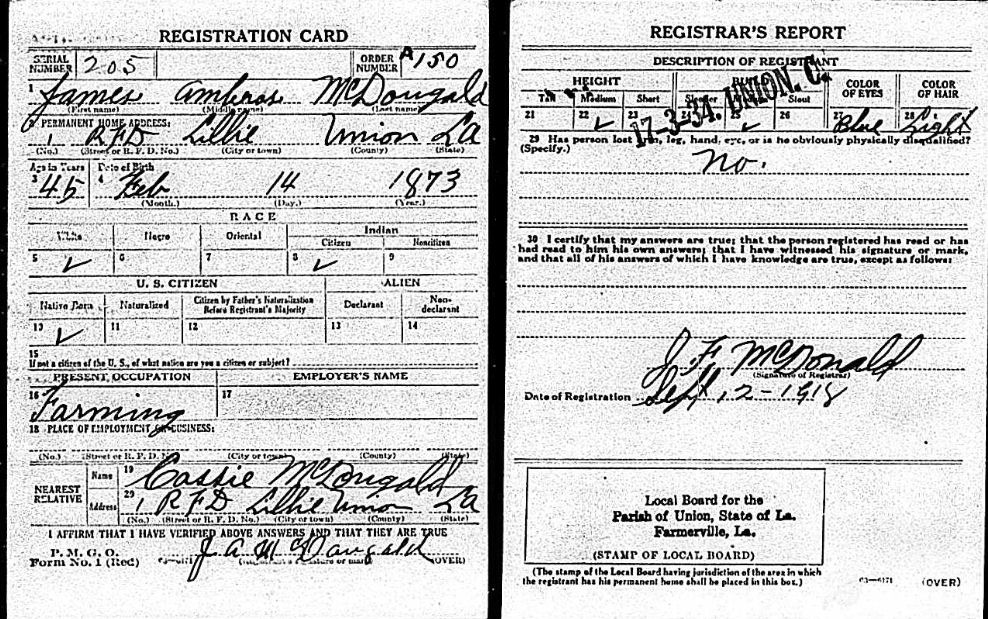 REGISTRATION CARD
SERIAL NUMBER 205 ORDER NUMBER A150
1 James Ambros McDougald
(First name) (Middle name) (Last name)
2 PERMANENT HOME ADDRESS:
1 RFD Lillie Union La
(No.) (Street or R. F. D. No.) (City or town) (County) (State)
Age in Years Date of Birth
3 45 4 Feb 14 1873
(Month.) (Day.) (Year.)
RACE
White Negro Oriental Indian
Citizen Noncitizen
5 ✓ 6 7 8 ✓ 9
U. S. CITIZEN ALIEN
Native Born Naturalized Citizen by Father's Naturalization Before Registrant's Majority Declarant Non-declarant
10 ✓ 11 12 13 14
15
If not a citizen of the U. S., of what nation are you a citizen or subject?
PRESENT OCCUPATION EMPLOYER'S NAME
16 Farming 17
18 PLACE OF EMPLOYMENT OR BUSINESS:
(No.) (Street or R. F. D. No.) (City or town) (County) (State)
NEAREST RELATIVE Name 19 Cassie McDougald
Address 20 1 RFD Lillie Union La
(No.) (Street or R. F. D. No.) (City or town) (County) (State)
I AFFIRM THAT I HAVE VERIFIED ABOVE ANSWERS AND THAT THEY ARE TRUE
P. M. G. O.
Form No. 1 (Red) J A McDougald (OVER)
REGISTRAR'S REPORT
DESCRIPTION OF REGISTRANT
HEIGHT COLOR OF EYES COLOR OF HAIR
Tall Medium Short Slender Stout
21 22 ✓ 23 24 25 ✓ 26 27 Blue 28 Light
17-3-34. UNION. C.
29 Has person lost arm, leg, hand, eye, or is he obviously physically disqualified?
(Specify.)
No.
30 I certify that my answers are true; that the person registered has read or has
had read to him his own answers; that I have witnessed his signature or mark,
and that all of his answers of which I have knowledge are true, except as follows:
J F McDonald
(Signature of Registrar)
Date of Registration Sept 12-1918
Local Board for the
Parish of Union, State of La.
Farmerville, La.
(STAMP OF LOCAL BOARD)
(The stamp of the Local Board having jurisdiction of the area in which
the registrant has his permanent home shall be placed in this box.)
03—6171 (OVER)